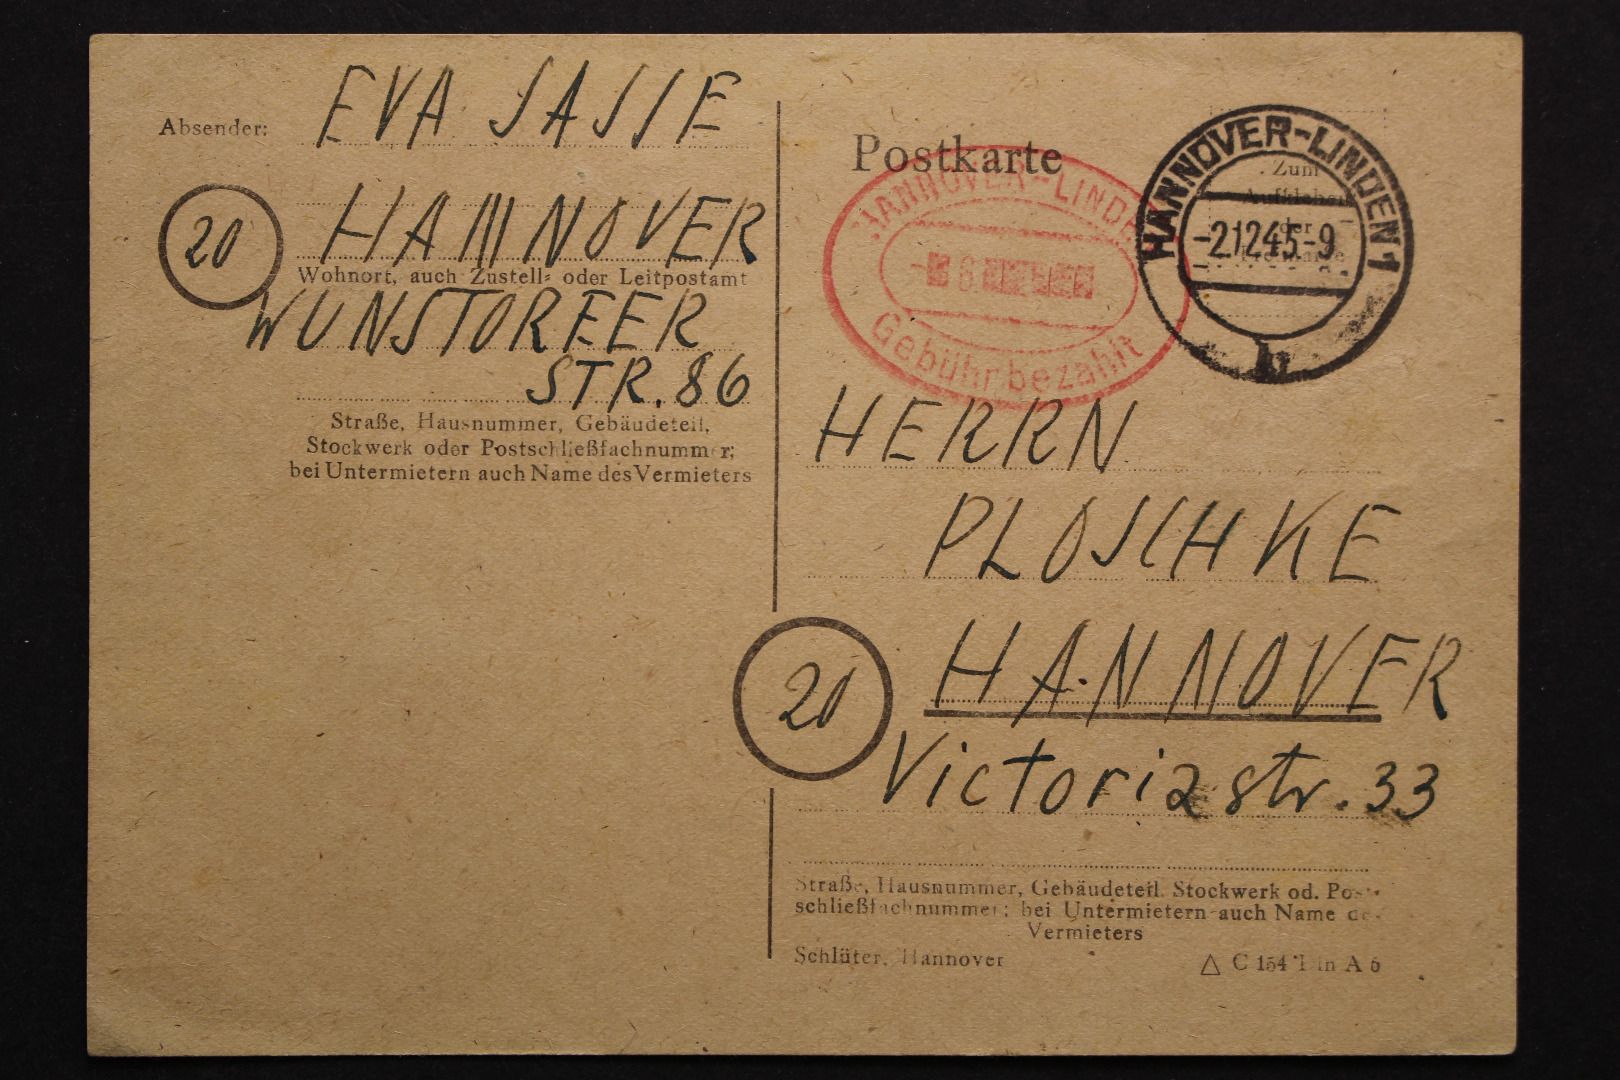 Absender: EVA SASSE
20 HANNOVER
Wohnort, auch Zustell- oder Leitpostamt
WUNSTORFER
STR. 86
Straße, Hausnummer, Gebäudeteil,
Stockwerk oder Postschließfachnummer;
bei Untermietern auch Name des Vermieters
Postkarte
HANNOVER-LINDEN
6
Gebühr bezahlt
HANNOVER-LINDEN 1
-2.12.45.-9
h
Zum
Aufkleben
der
HERRN
PLOSCHKE
20 HANNOVER
Victoriastr. 33
Straße, Hausnummer, Gebäudeteil, Stockwerk od. Post-
schließfachnummer; bei Untermietern auch Name des
Vermieters
Schlüter, Hannover
△ C 154 Din A 6